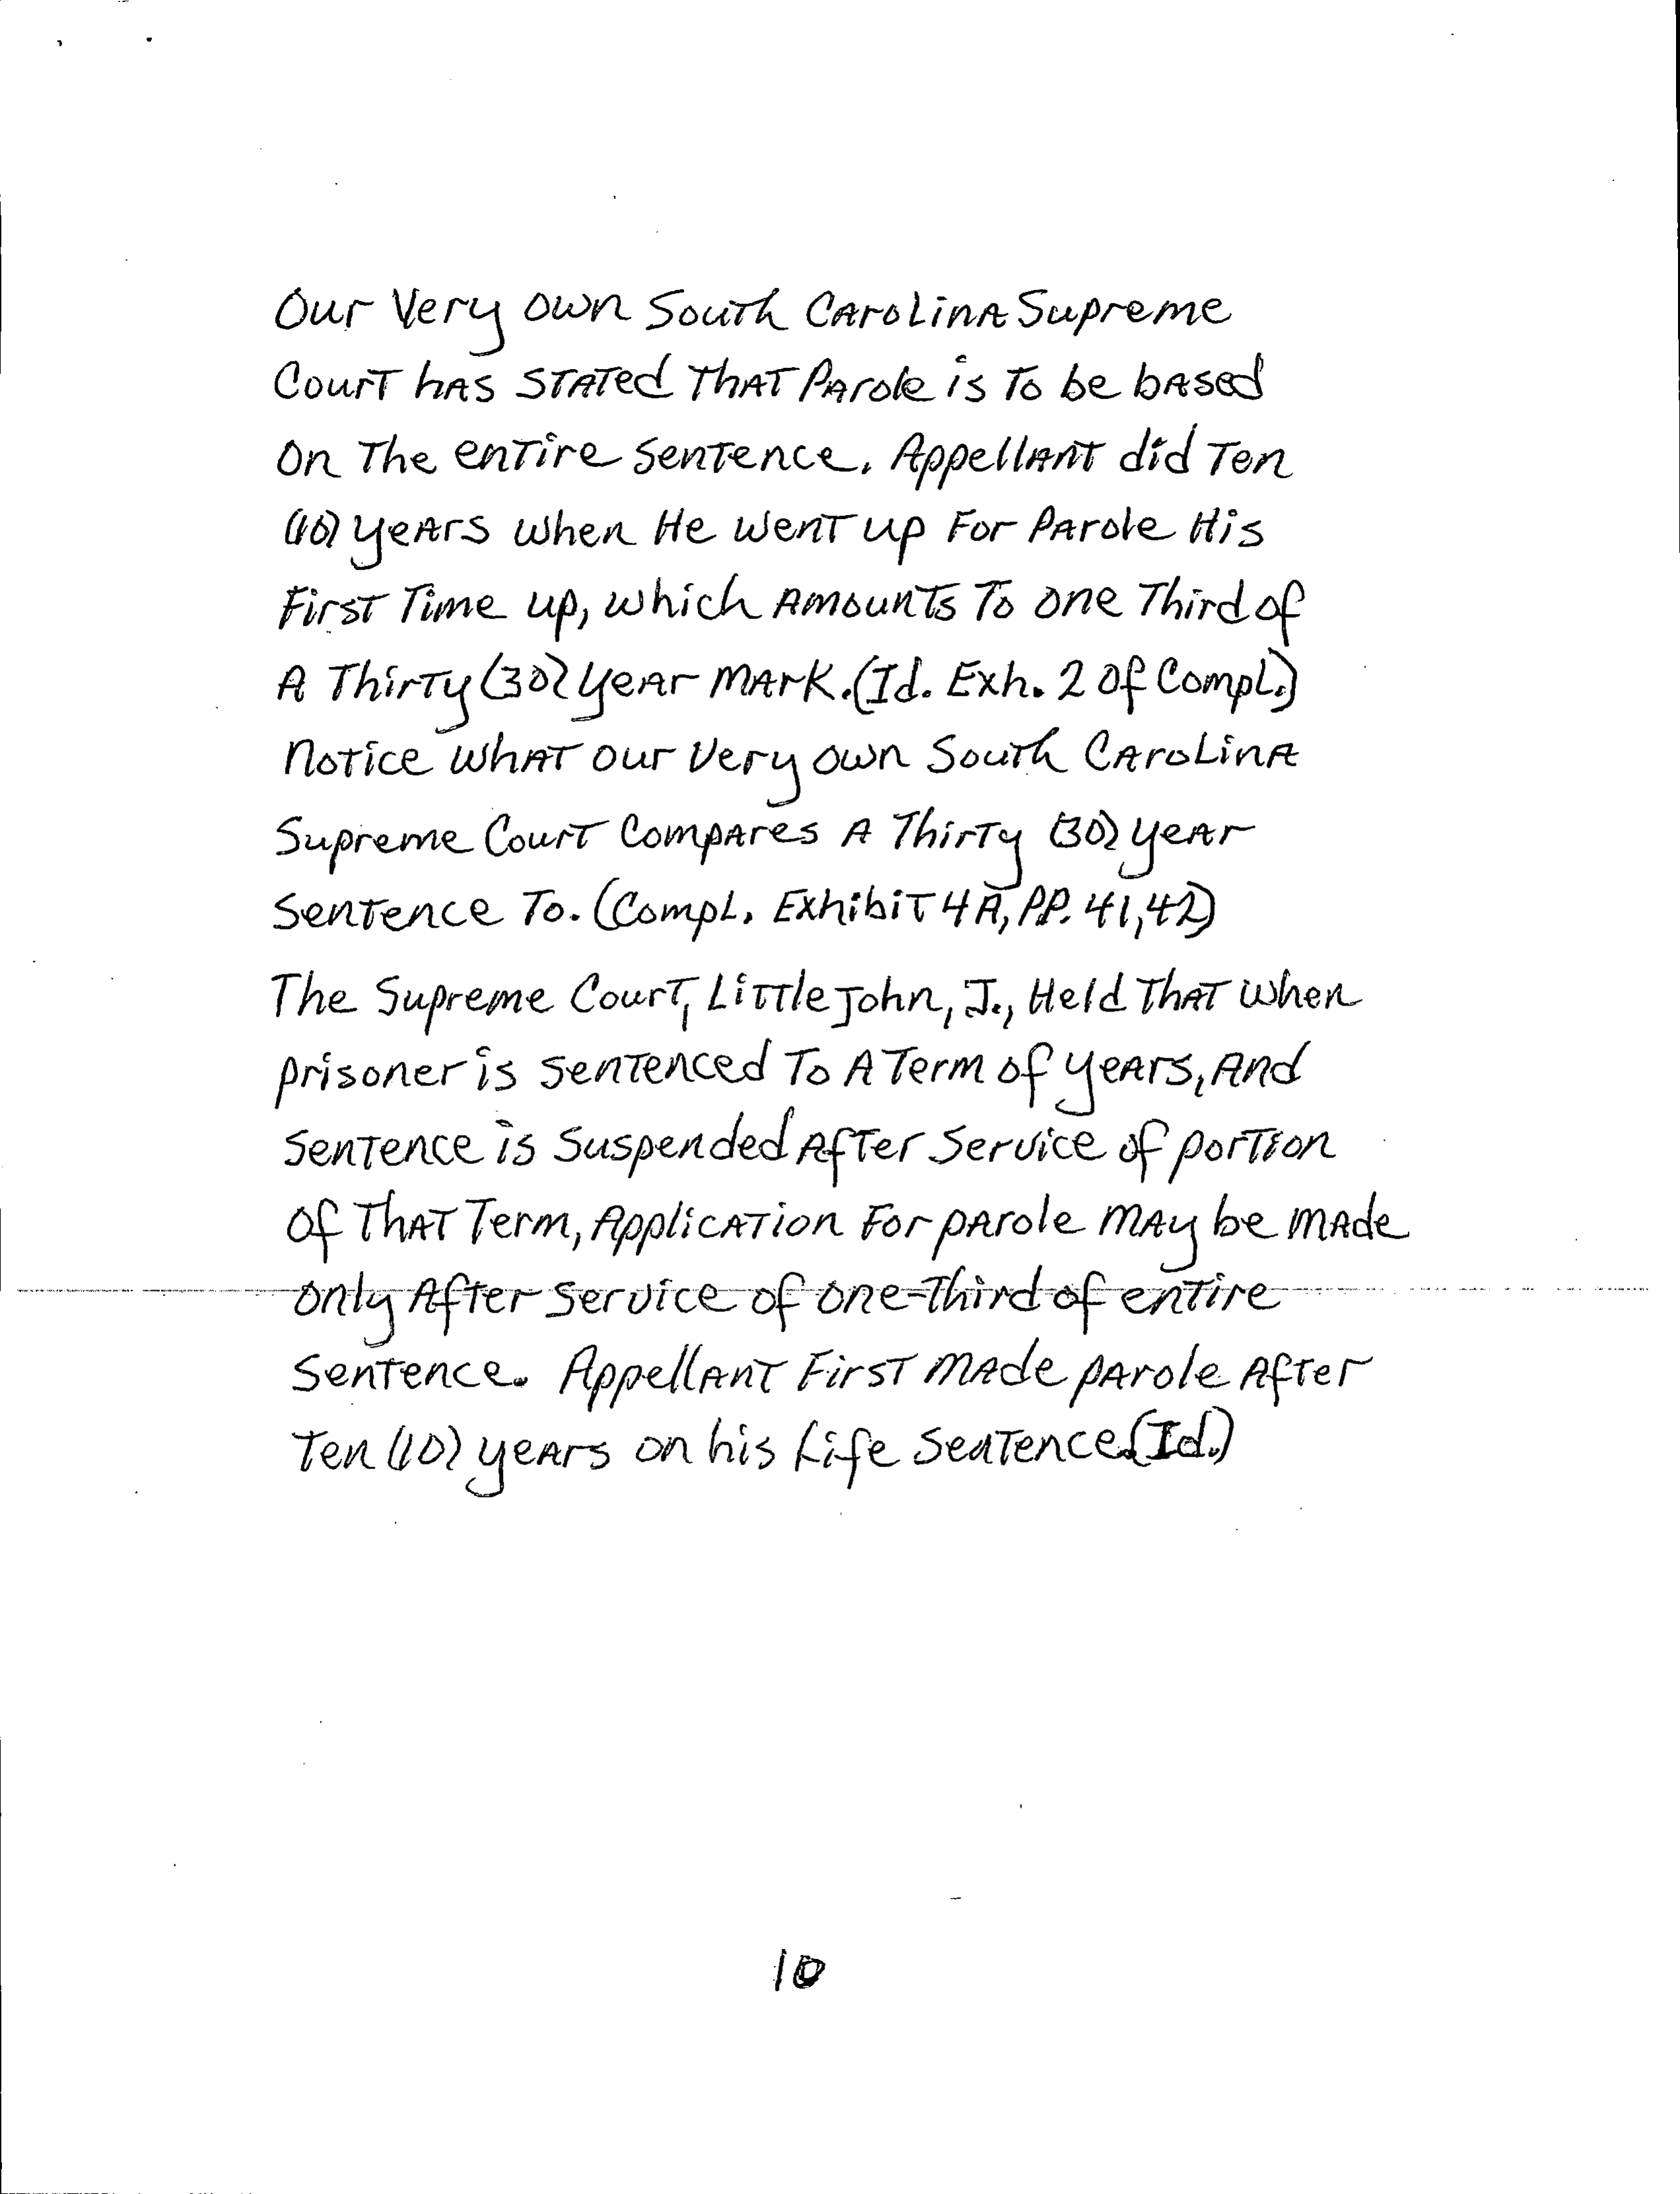 Our Very own South Carolina Supreme
Court has stated that Parole is to be based
on the entire sentence. Appellant did Ten
(10) years when He went up For Parole His
First Time up, which Amounts To one Third of
A Thirty (30) year mark. (Id. Exh. 2 of Compl.)
Notice what our Very own South Carolina
Supreme Court Compares A Thirty (30) year
Sentence To. (Compl. Exhibit 4A, PP. 41,42)
The Supreme Court, LittleJohn, J., Held That when
prisoner is sentenced To A Term of years, And
sentence is suspended After service of portion
of That Term, Application For parole may be made
only After service of one-Third of entire
sentence. Appellant First made parole After
Ten (10) years on his Life Sentence. (Id.)
10